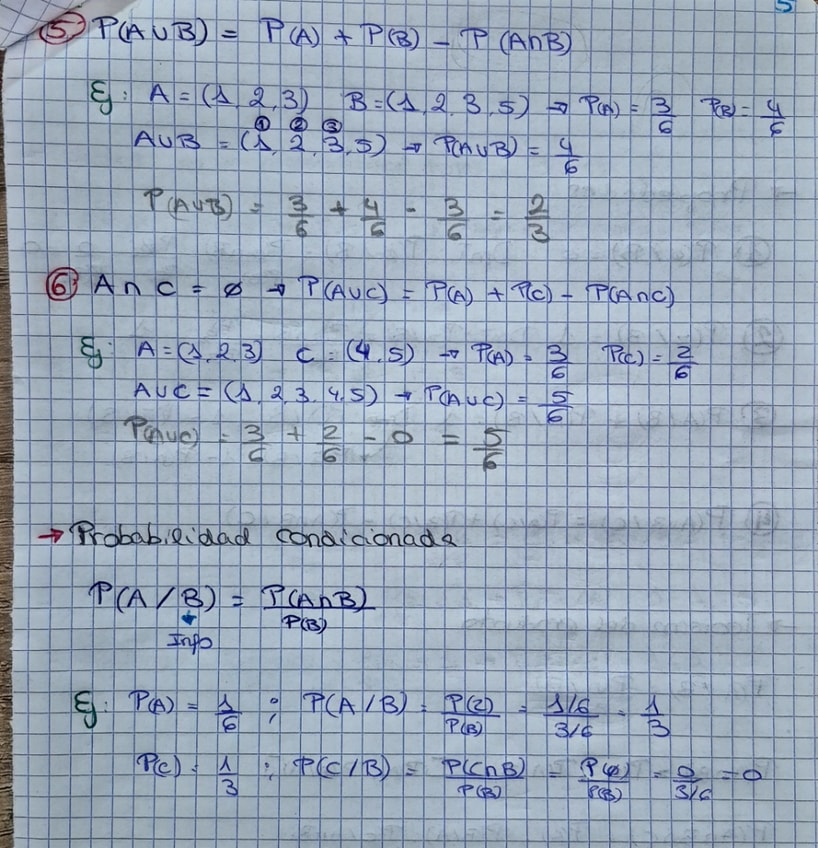 5
⑤ P(A∪B) = P(A) + P(B) - P(A∩B)
Ej: A = (1, 2, 3) B = (1, 2, 3, 5) → P(A) = 3/6 P(B) = 4/6
① ② ③
A∪B = (1, 2, 3, 5) → P(A∪B) = 4/6
P(A∪B) = 3/6 + 4/6 - 3/6 = 2/3
⑥ A∩C = ∅ → P(A∪C) = P(A) + P(C) - P(A∩C)
Ej: A = (1, 2, 3) C = (4, 5) → P(A) = 3/6 P(C) = 2/6
A∪C = (1, 2, 3, 4, 5) → P(A∪C) = 5/6
P(A∪C) = 3/6 + 2/6 - 0 = 5/6
→ Probabilidad condicionada
P(A/B) = P(A∩B)/P(B)
↓
Info
Ej: P(A) = 1/6 ; P(A/B) = P(2)/P(B) = 1/6/3/6 = 1/3
P(C) = 1/3 ; P(C/B) = P(C∩B)/P(B) = P(∅)/P(B) = 0/3/6 = 0